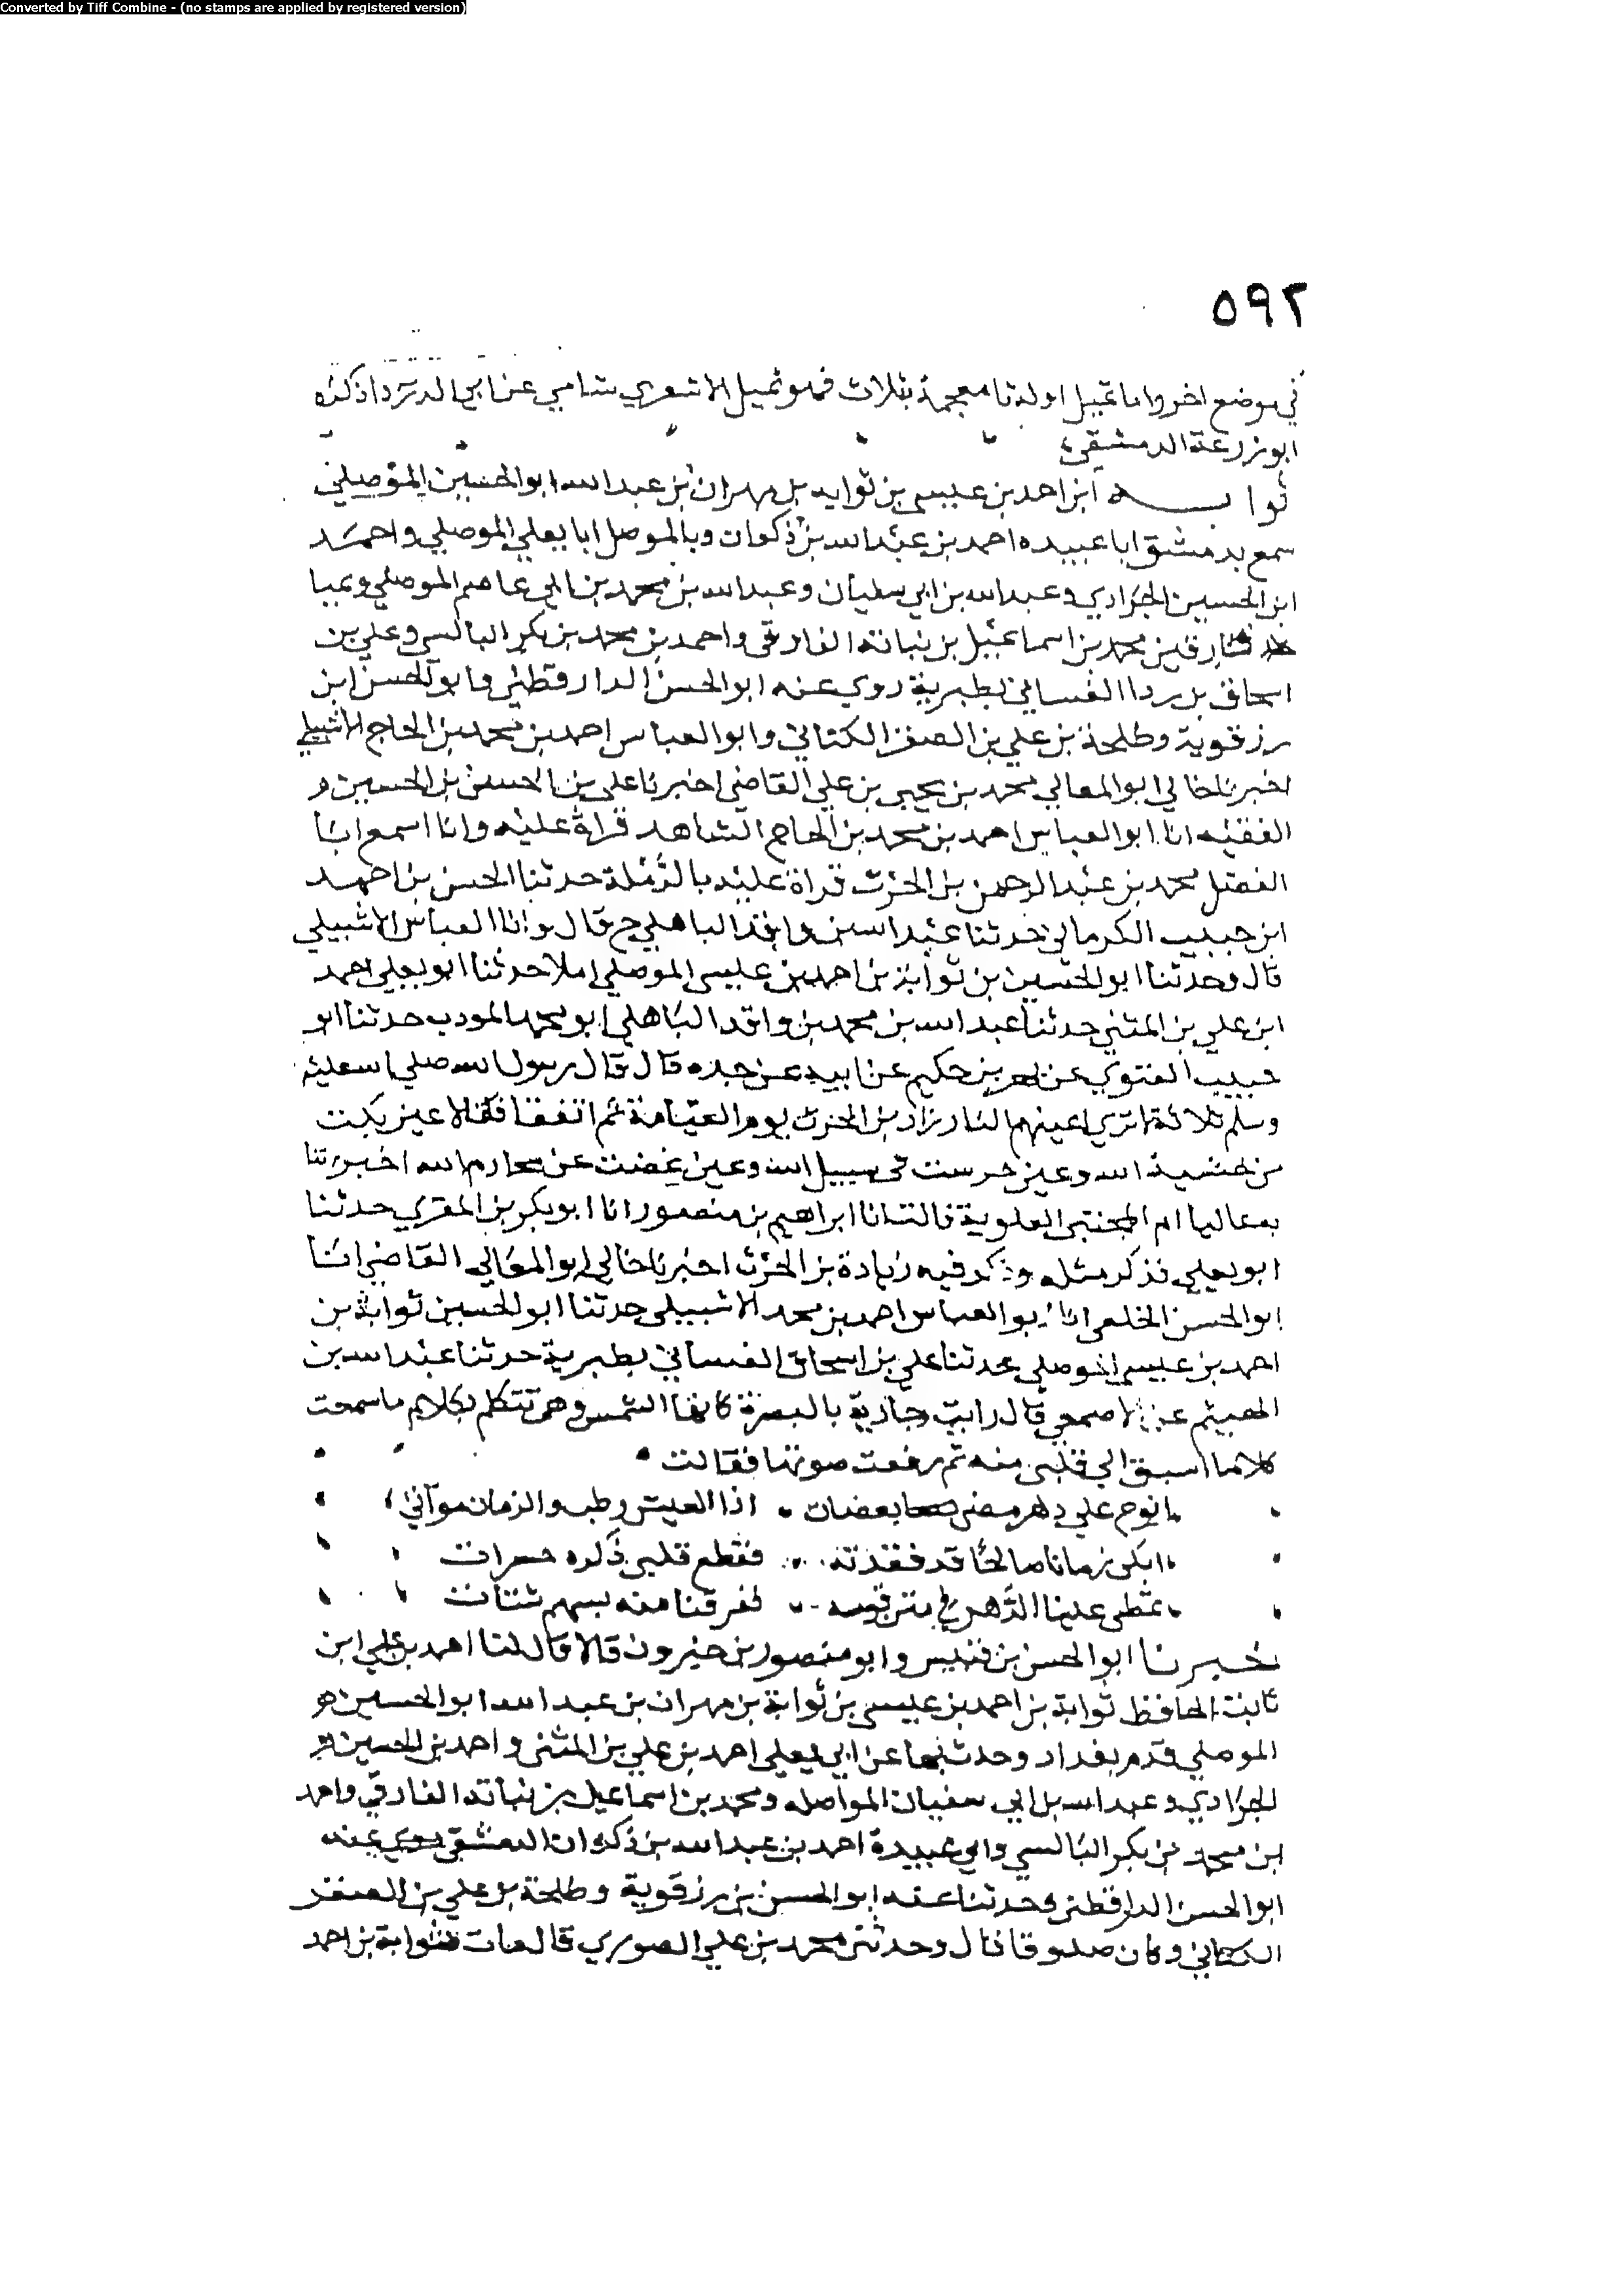 Converted by Tiff Combine - (no stamps are applied by registered version)
٥٩٢
في موضع اخر واما ثميل اوله ثا معجمة بثلاث فهو ثميل الاشعري شامي عن ابي الدرداذكره
ابوزرعة الدمشقي
ثوابـــه ابن احمد بن عيسى بن ثوابه بن مهران بن عبدالله ابو الحسين الموصلي
سمع بدمشق ابا عبيده احمد بن عبدالله بن ذكوان وبالموصل ابا يعلي الموصلي واحمد
ابن الحسين الجرادي وعبدالله بن ابي سفيان وعبدالله بن محمد بن ابي عاصم الموصلي وبميا
فارقين محمد بن اسماعيل بن نباتة الفارقي واحمد بن محمد بن بكر البالسي وعلي بن
اسحاق بن ردا الغساني بطبرية روي عنه ابو الحسن الدارقطني وابو الحسن ابن
رزقوية وطلحة بن علي بن الصقر الكتاني وابو العباس احمد بن محمد بن الحاج الاشبيلي
اخبرنا خالي ابو المعالي محمد بن يحيى بن علي القاضي اخبرنا علي بن الحسن بن الحسين
الفقيه انا ابو العباس احمد بن محمد بن الحاج الشاهد قراة عليه وانا اسمع انبا
الفضل محمد بن عبد الرحمن بن الحرث قراة عليه بالرملة حدثنا الحسن بن احمد
ابن حبيب الكرماني حدثنا عبد الله بن واقد الباهلي ح قال وانا العباس الاشبيلي
قال وحدثنا ابو الحسين بن ثوابة بن احمد بن عيسى الموصلي املا حدثنا ابو يعلي احمد
ابن علي بن المثني حدثنا عبد الله بن محمد بن واقد الباهلي ابو محمد المودب حدثنا ابو
حبيب الغنوي عن بهز بن حكيم عن ابيه عن جده قال قال رسول الله صلي الله عليه
وسلم ثلاثة لا تري اعينهم النار زاد بن الحرث يوم القيامة ثم اتفقا فقالا عين بكت
من خشية الله وعين حرست في سبيل الله وعين غضت عن محارم الله اخبرتنا
بها عاليا ام المجتبى العلوية قالت انا ابراهيم بن منصور انا ابو بكر بن المقري حدثنا
ابو يعلي فذكر مثله وذكر فيه زيادة بن الحرث اخبرنا خالي ابو المعالي القاضي انبا
ابو الحسن الخلعي انا ابو العباس احمد بن محمد الاشبيلي حدثنا ابو الحسين ثوابة بن
احمد بن عيسى الموصلي حدثنا علي بن اسحاق الغساني بطبرية حدثنا عبد الله بن
الهيثم عن الاصمعي قال رايت جارية بالبصرة كانها الشمس وهي تتكلم بكلام ما سمعت
كلاما اسبق الي قلبي منه ثم رفعت صوتها فقالت
انوح علي دهر مضى بغضان اذا العيش رطب والزمان مواني
ابكى زمانا صالحا قد فقدته فقطع قلبي ذكره حسرات
تمطى علينا الدهر في متن قوسه ففرقنا منه بسهم شتات
اخـبـرنـا ابو الحسن بن قبيس وابو منصور بن خيرون قالا قال لنا احمد بن علي ابن
ثابت الحافظ ثوابة بن احمد بن عيسى بن ثوابة بن مهران بن عبد الله ابو الحسين
الموصلي قدم بغداد وحدث بها عن ابي يعلى احمد بن علي بن المثنى واحمد بن الحسين
الجرادي وعبد الله بن ابي سفيان المواصله ومحمد بن اسماعيل بن نباته الفارقي واحمد
ابن محمد بن بكر البالسي وابي عبيدة احمد بن عبد الله بن ذكوان الدمشقي روي عنه
ابو الحسن الدارقطني وحدثنا عنه ابو الحسن بن رزقوية وطلحة بن علي بن الصقر
الكتاني وكان صدوقا قال وحدثني محمد بن علي الصوري قال مات ثوابة بن احمد